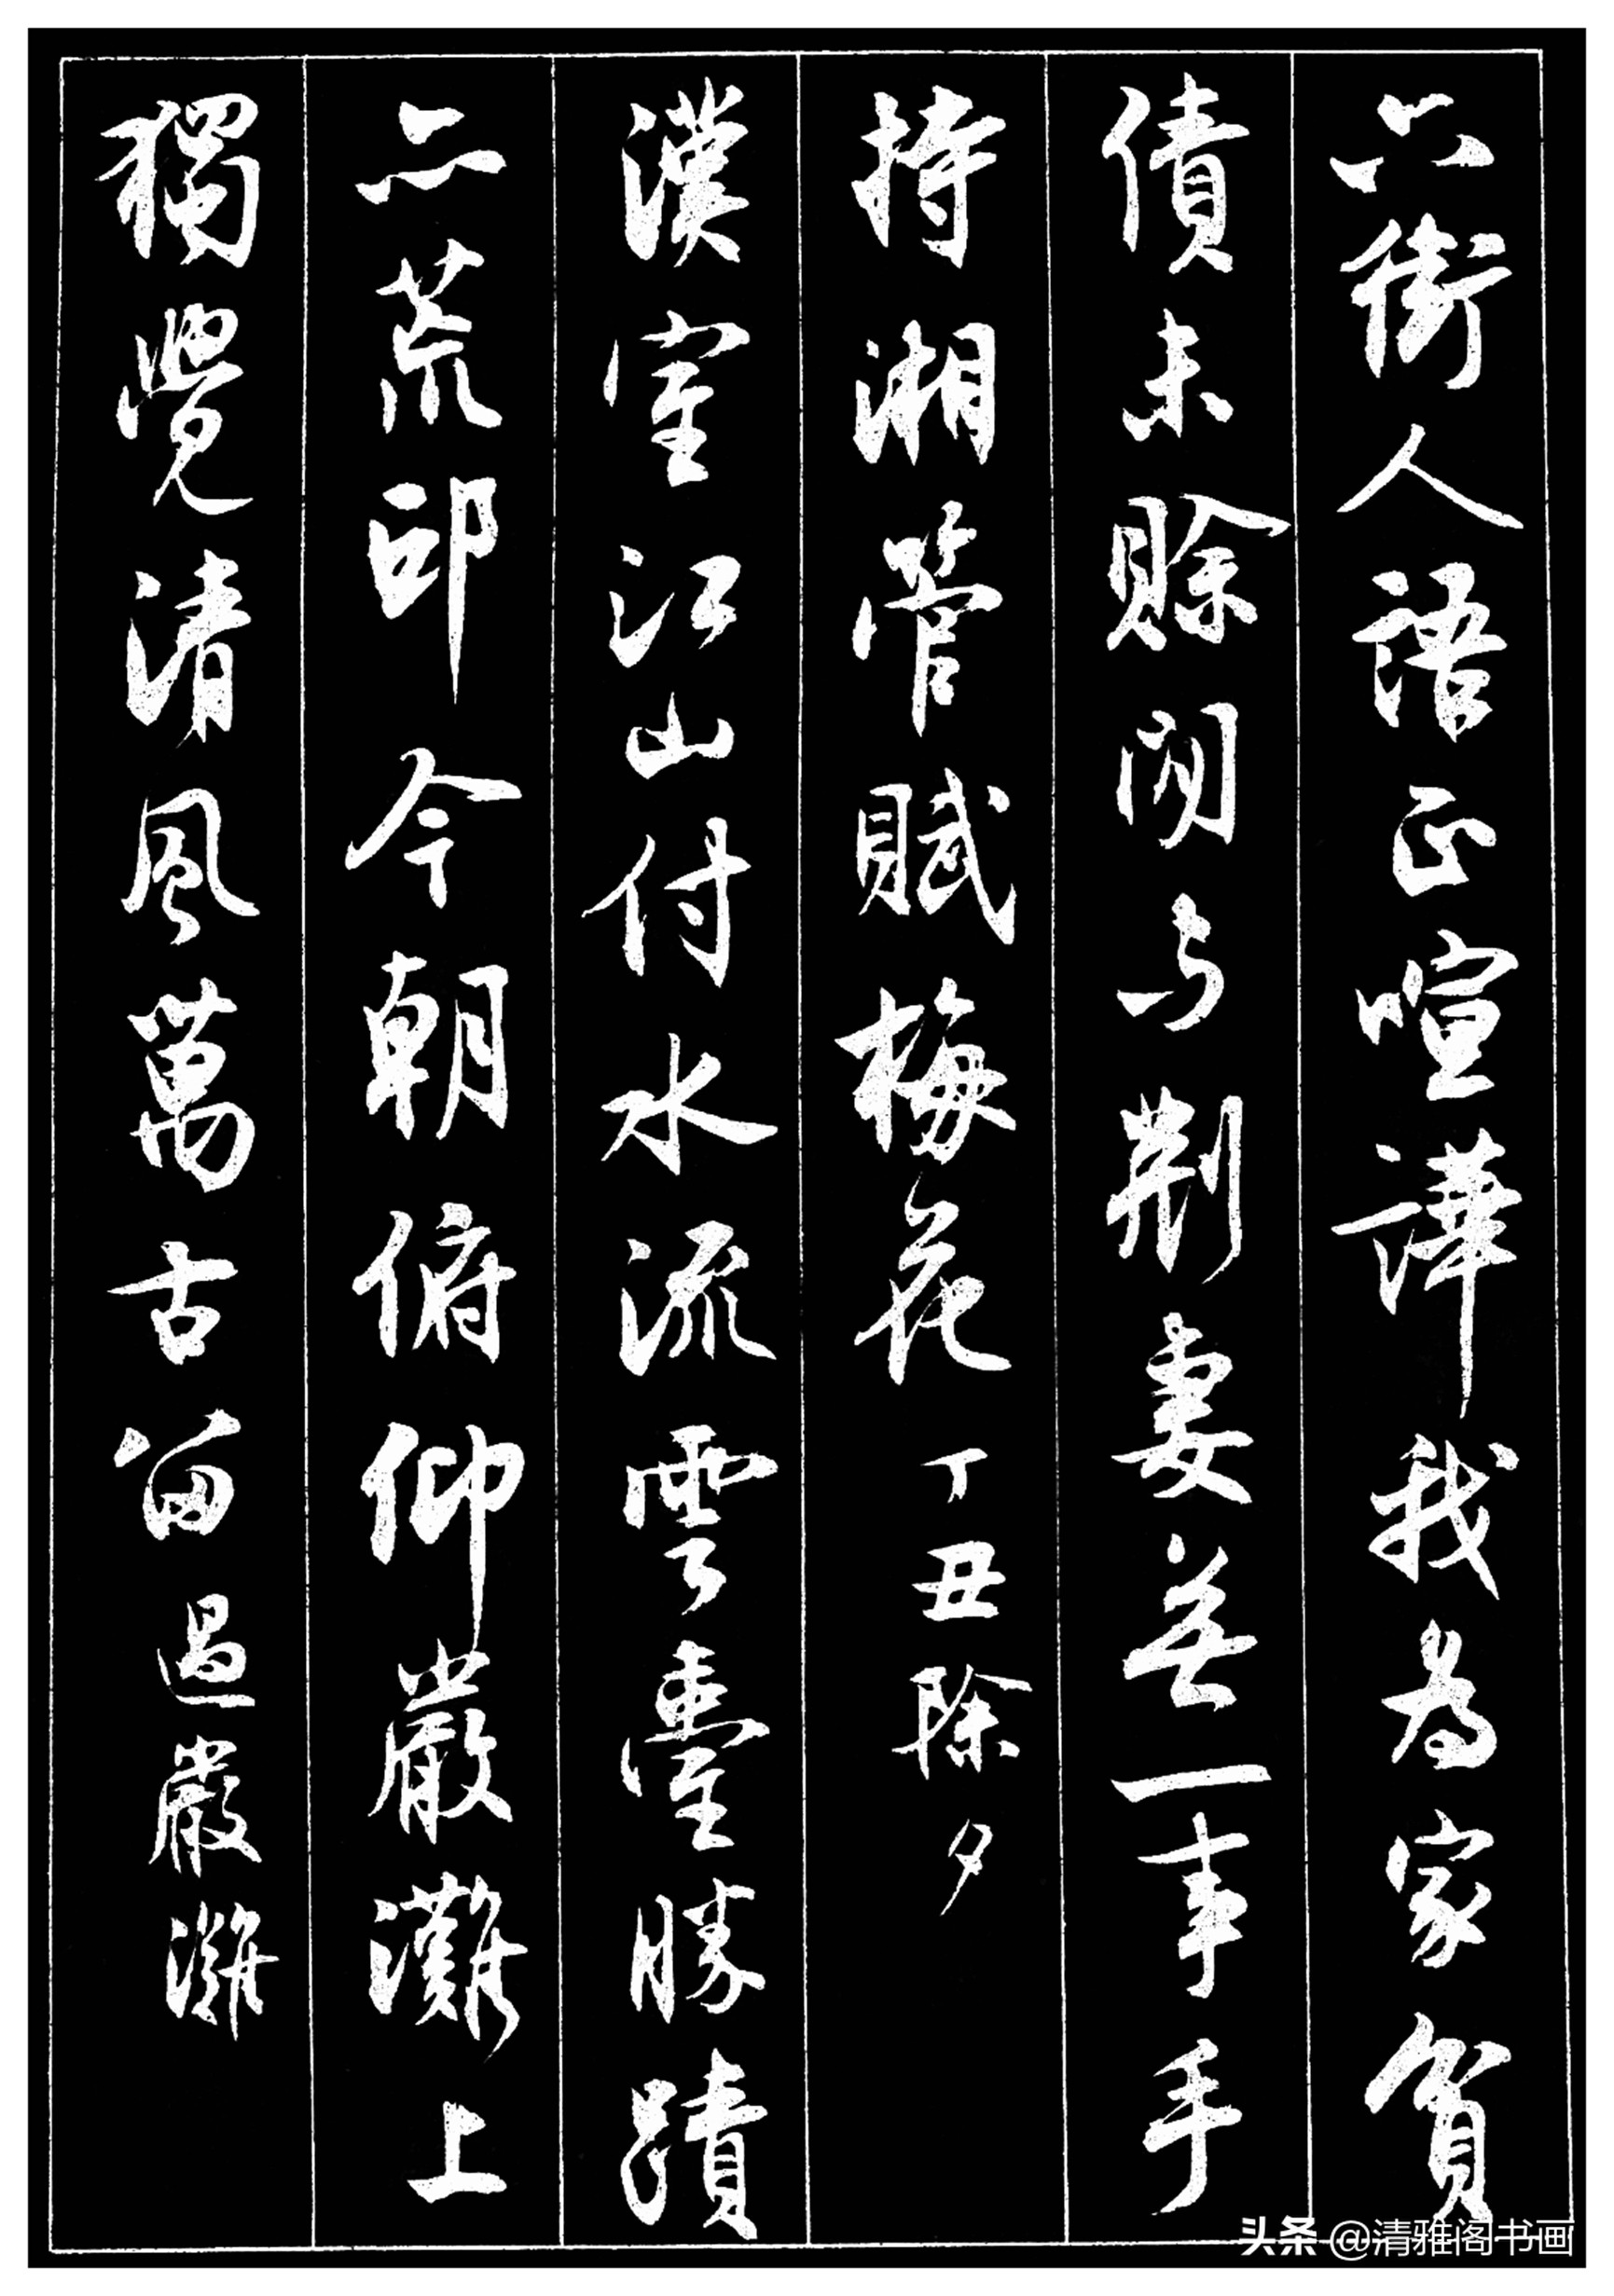 六街人語正喧譁我為家貧
債未賒閒与荆妻無一事手
持湘管賦梅花丁丑除夕
漢室江山付水流雲臺勝蹟
亦荒邱今朝俯仰嚴灘上
獨覺清風萬古留過嚴灘
头条@清雅阁书画